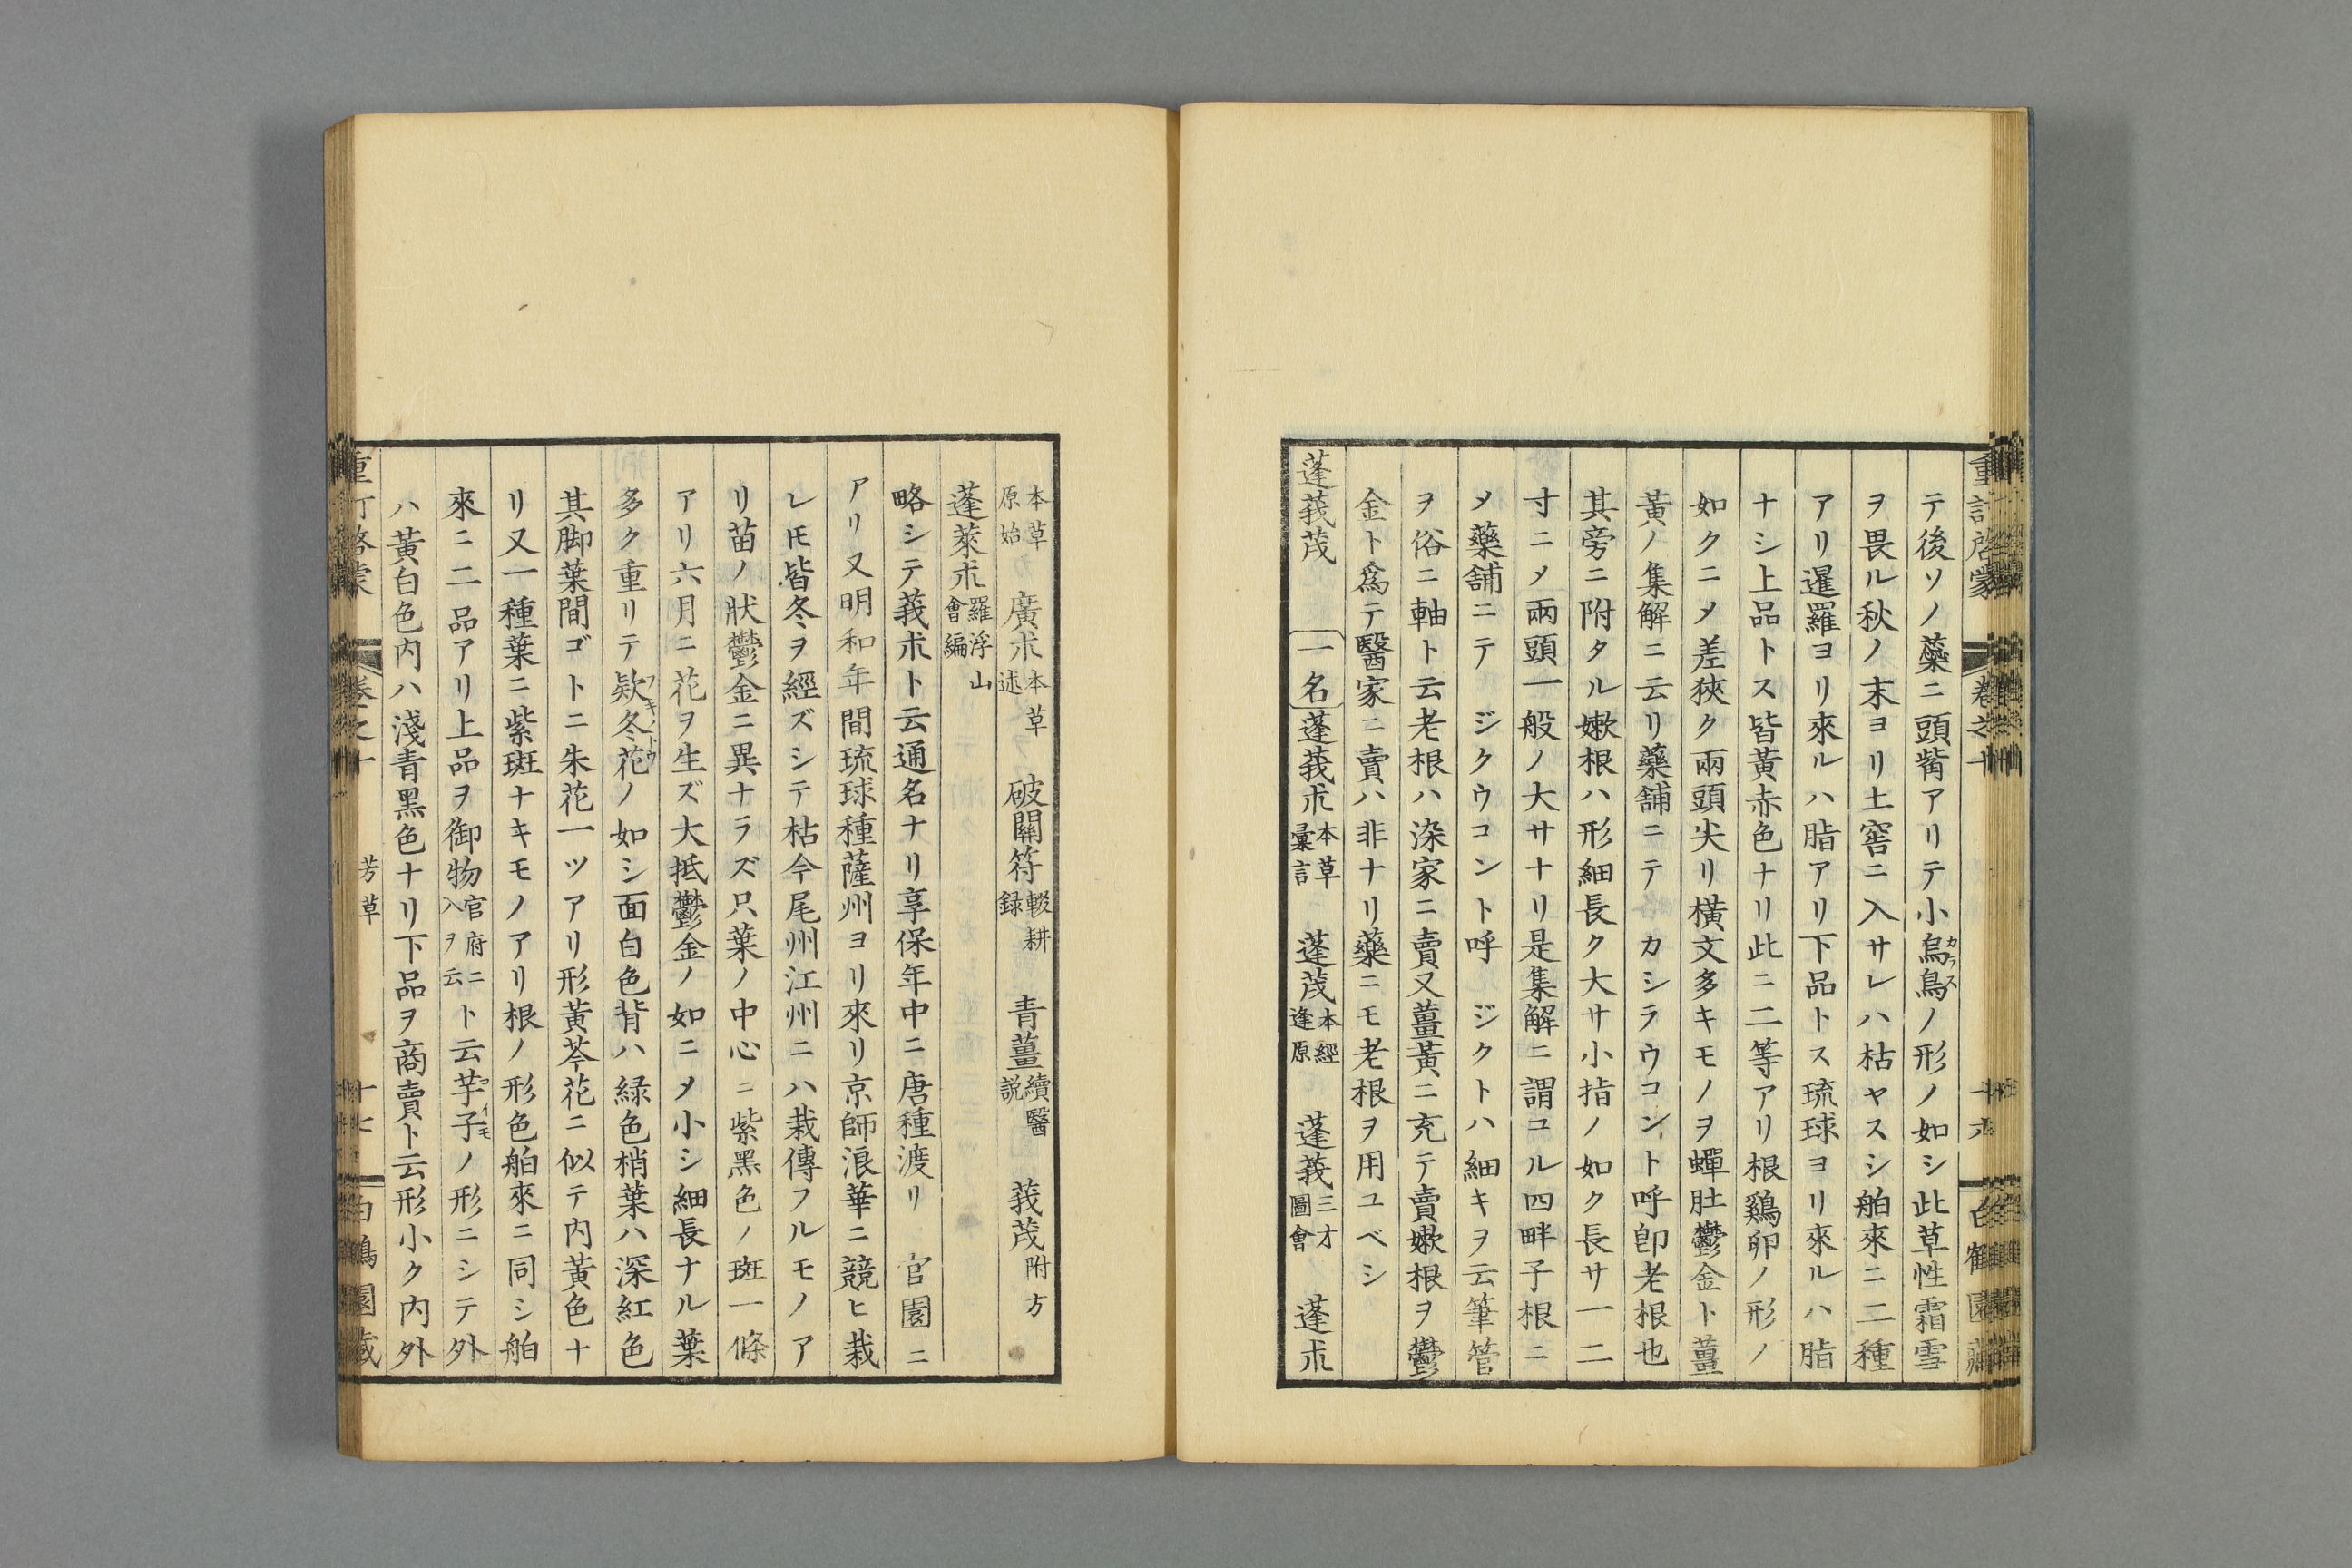 重訂啓蒙 卷之十 十六 白鶴園藏
テ後ソノ藥ニ頭觜アリテ小烏鳥カラスノ形ノ如シ此草性霜雪
ヲ畏ル秋ノ末ヨリ土窖ニ入サレハ枯ヤスシ舶來ニ二種
アリ暹羅ヨリ來ルハ脂アリ下品トス琉球ヨリ來ルハ脂
ナシ上品トス皆黃赤色ナリ此ニ二等アリ根鷄卵ノ形ノ
如クニ〆差狹ク兩頭尖リ橫文多キモノヲ蟬肚鬱金ト薑
黃ノ集解ニ云リ藥舖ニテ カシラウコント呼卽老根也
其旁ニ附タル嫩根ハ形細長ク大サ小指ノ如ク長サ一二
寸ニ〆兩頭一般ノ大サナリ是集解ニ謂コル四畔子根ニ
〆藥舖ニテ ジクウコント呼 ジクトハ細キヲ云筆管
ヲ俗ニ軸ト云老根ハ染家ニ賣又薑黃ニ充テ賣嫩根ヲ鬱
金ト爲テ醫家ニ賣ハ非ナリ藥ニモ老根ヲ用ユベシ
蓬莪茂 一名 蓬莪朮本草彙言 蓬茂本經逢原 蓬莪三才圖會 蓬朮
本草原始 廣朮本草述 破關符輟耕録 青薑續醫説 莪茂附方
蓬萊朮羅浮山會編
略シテ莪朮ト云通名ナリ享保年中ニ唐種渡リ 官園ニ
アリ又明和年間琉球種薩州ヨリ來リ京師浪華ニ競ヒ栽
レ𪜈皆冬ヲ經ズシテ枯今尾州江州ニハ栽傳フルモノア
リ苗ノ狀鬱金ニ異ナラズ只葉ノ中心ニ紫黑色ノ斑一條
アリ六月ニ花ヲ生ズ大抵鬱金ノ如ニ〆小シ細長ナル葉
多ク重リテ欵冬花フキノトウノ如シ面白色背ハ緑色梢葉ハ深紅色
其脚葉間ゴトニ朱花一ツアリ形黃芩花ニ似テ內黃色ナ
リ又一種葉ニ紫斑ナキモノアリ根ノ形色舶來ニ同シ舶
來ニ二品アリ上品ヲ御物官府ニ入ヲ云ト云芋子イモノ形ニシテ外
ハ黃白色內ハ淺青黑色ナリ下品ヲ商賣ト云形小ク內外
重訂啓蒙 卷之十 芳草 十七 白鶴園藏